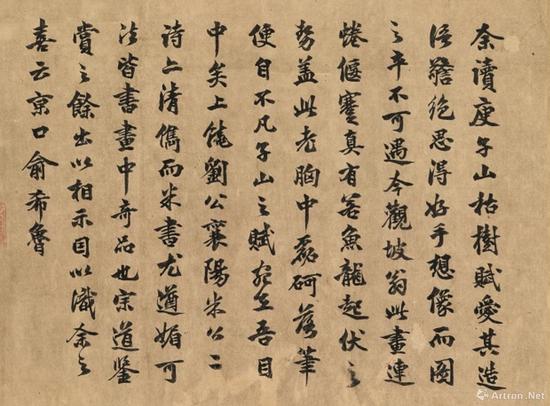 余讀庾子山枯樹賦愛其造
語警絶思得好手想像而圖
之卒不可遇今觀坡翁此畫連
蜷偃蹇真有若魚龍起伏之
勢蓋此老胸中磊砢落筆
便自不凡子山之賦宛在吾目
中矣上饒劉公襄陽米公二
詩亦清儁而米書尤遒媚可
法皆書畫中奇品也宗道鑒
賞之餘出以相示因以識余之
喜云京口俞希魯
Artron.Net